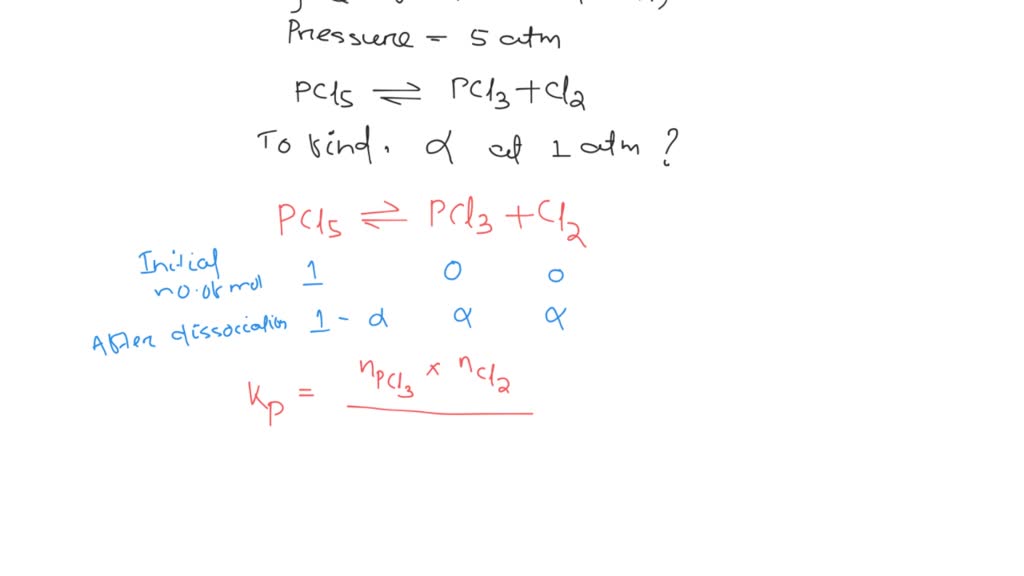 Pressure = 5 atm
PCl5 ⇌ PCl3 + Cl2
To find, α at 1 atm ?
PCl5 ⇌ PCl3 + Cl2
Initial no. of mol 1 0 0
After dissociation 1 - α α α
Kp = nPCl3 × nCl2